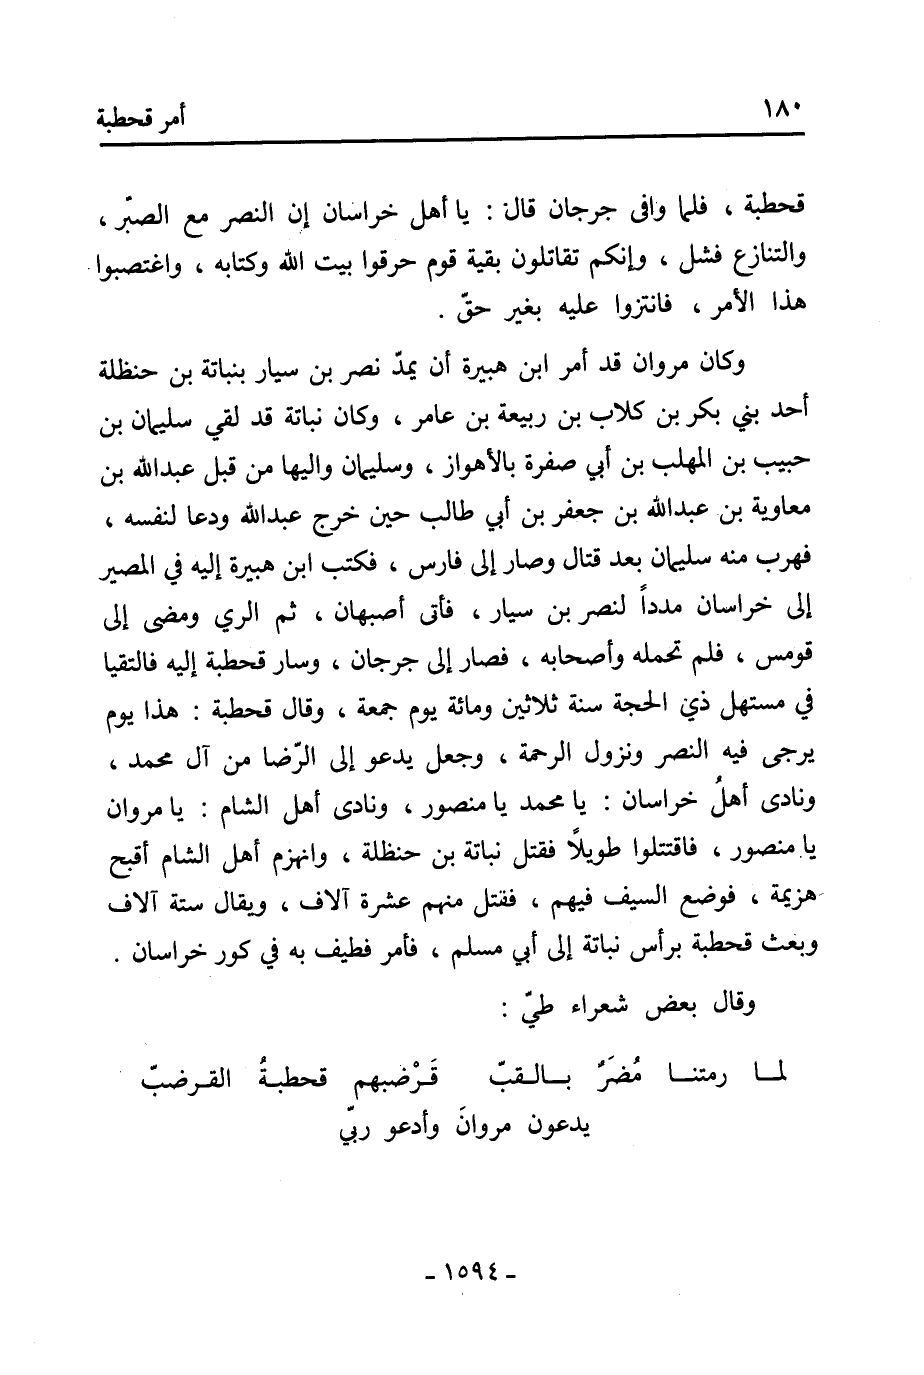 ١٨٠ أمر قحطبة
قحطبة ، فلما وافى جرجان قال : يا أهل خراسان إن النصر مع الصبّر ،
والتنازع فشل ، وإنكم تقاتلون بقية قوم حرقوا بيت الله وكتابه ، واغتصبوا
هذا الأمر ، فانتزوا عليه بغير حقّ .
وكان مروان قد أمر ابن هبيرة أن يمدّ نصر بن سيار بنباتة بن حنظلة
أحد بني بكر بن كلاب بن ربيعة بن عامر ، وكان نباتة قد لقي سليمان بن
حبيب بن المهلب بن أبي صفرة بالأهواز ، وسليمان واليها من قبل عبدالله بن
معاوية بن عبدالله بن جعفر بن أبي طالب حين خرج عبدالله ودعا لنفسه ،
فهرب منه سليمان بعد قتال وصار إلى فارس ، فكتب ابن هبيرة إليه في المصير
إلى خراسان مدداً لنصر بن سيار ، فأتى أصبهان ، ثم الري ومضى إلى
قومس ، فلم تحمله وأصحابه ، فصار إلى جرجان ، وسار قحطبة إليه فالتقيا
في مستهل ذي الحجة سنة ثلاثين ومائة يوم جمعة ، وقال قحطبة : هذا يوم
يرجى فيه النصر ونزول الرحمة ، وجعل يدعو إلى الرّضا من آل محمد ،
ونادى أهلُ خراسان : يا محمد يا منصور ، ونادى أهل الشام : يا مروان
يا منصور ، فاقتتلوا طويلاً فقتل نباتة بن حنظلة ، وانهزم أهل الشام أقبح
هزيمة ، فوضع السيف فيهم ، فقتل منهم عشرة آلاف ، ويقال ستة آلاف
وبعث قحطبة برأس نباتة إلى أبي مسلم ، فأمر فطيف به في كور خراسان .
وقال بعض شعراء طيّ :
لما رمتنا مُضَرٌ بالقبّ قَرْضبهم قحطبةُ القرضبّ
يدعون مروانَ وأدعو ربّي
- ١٥٩٤ -